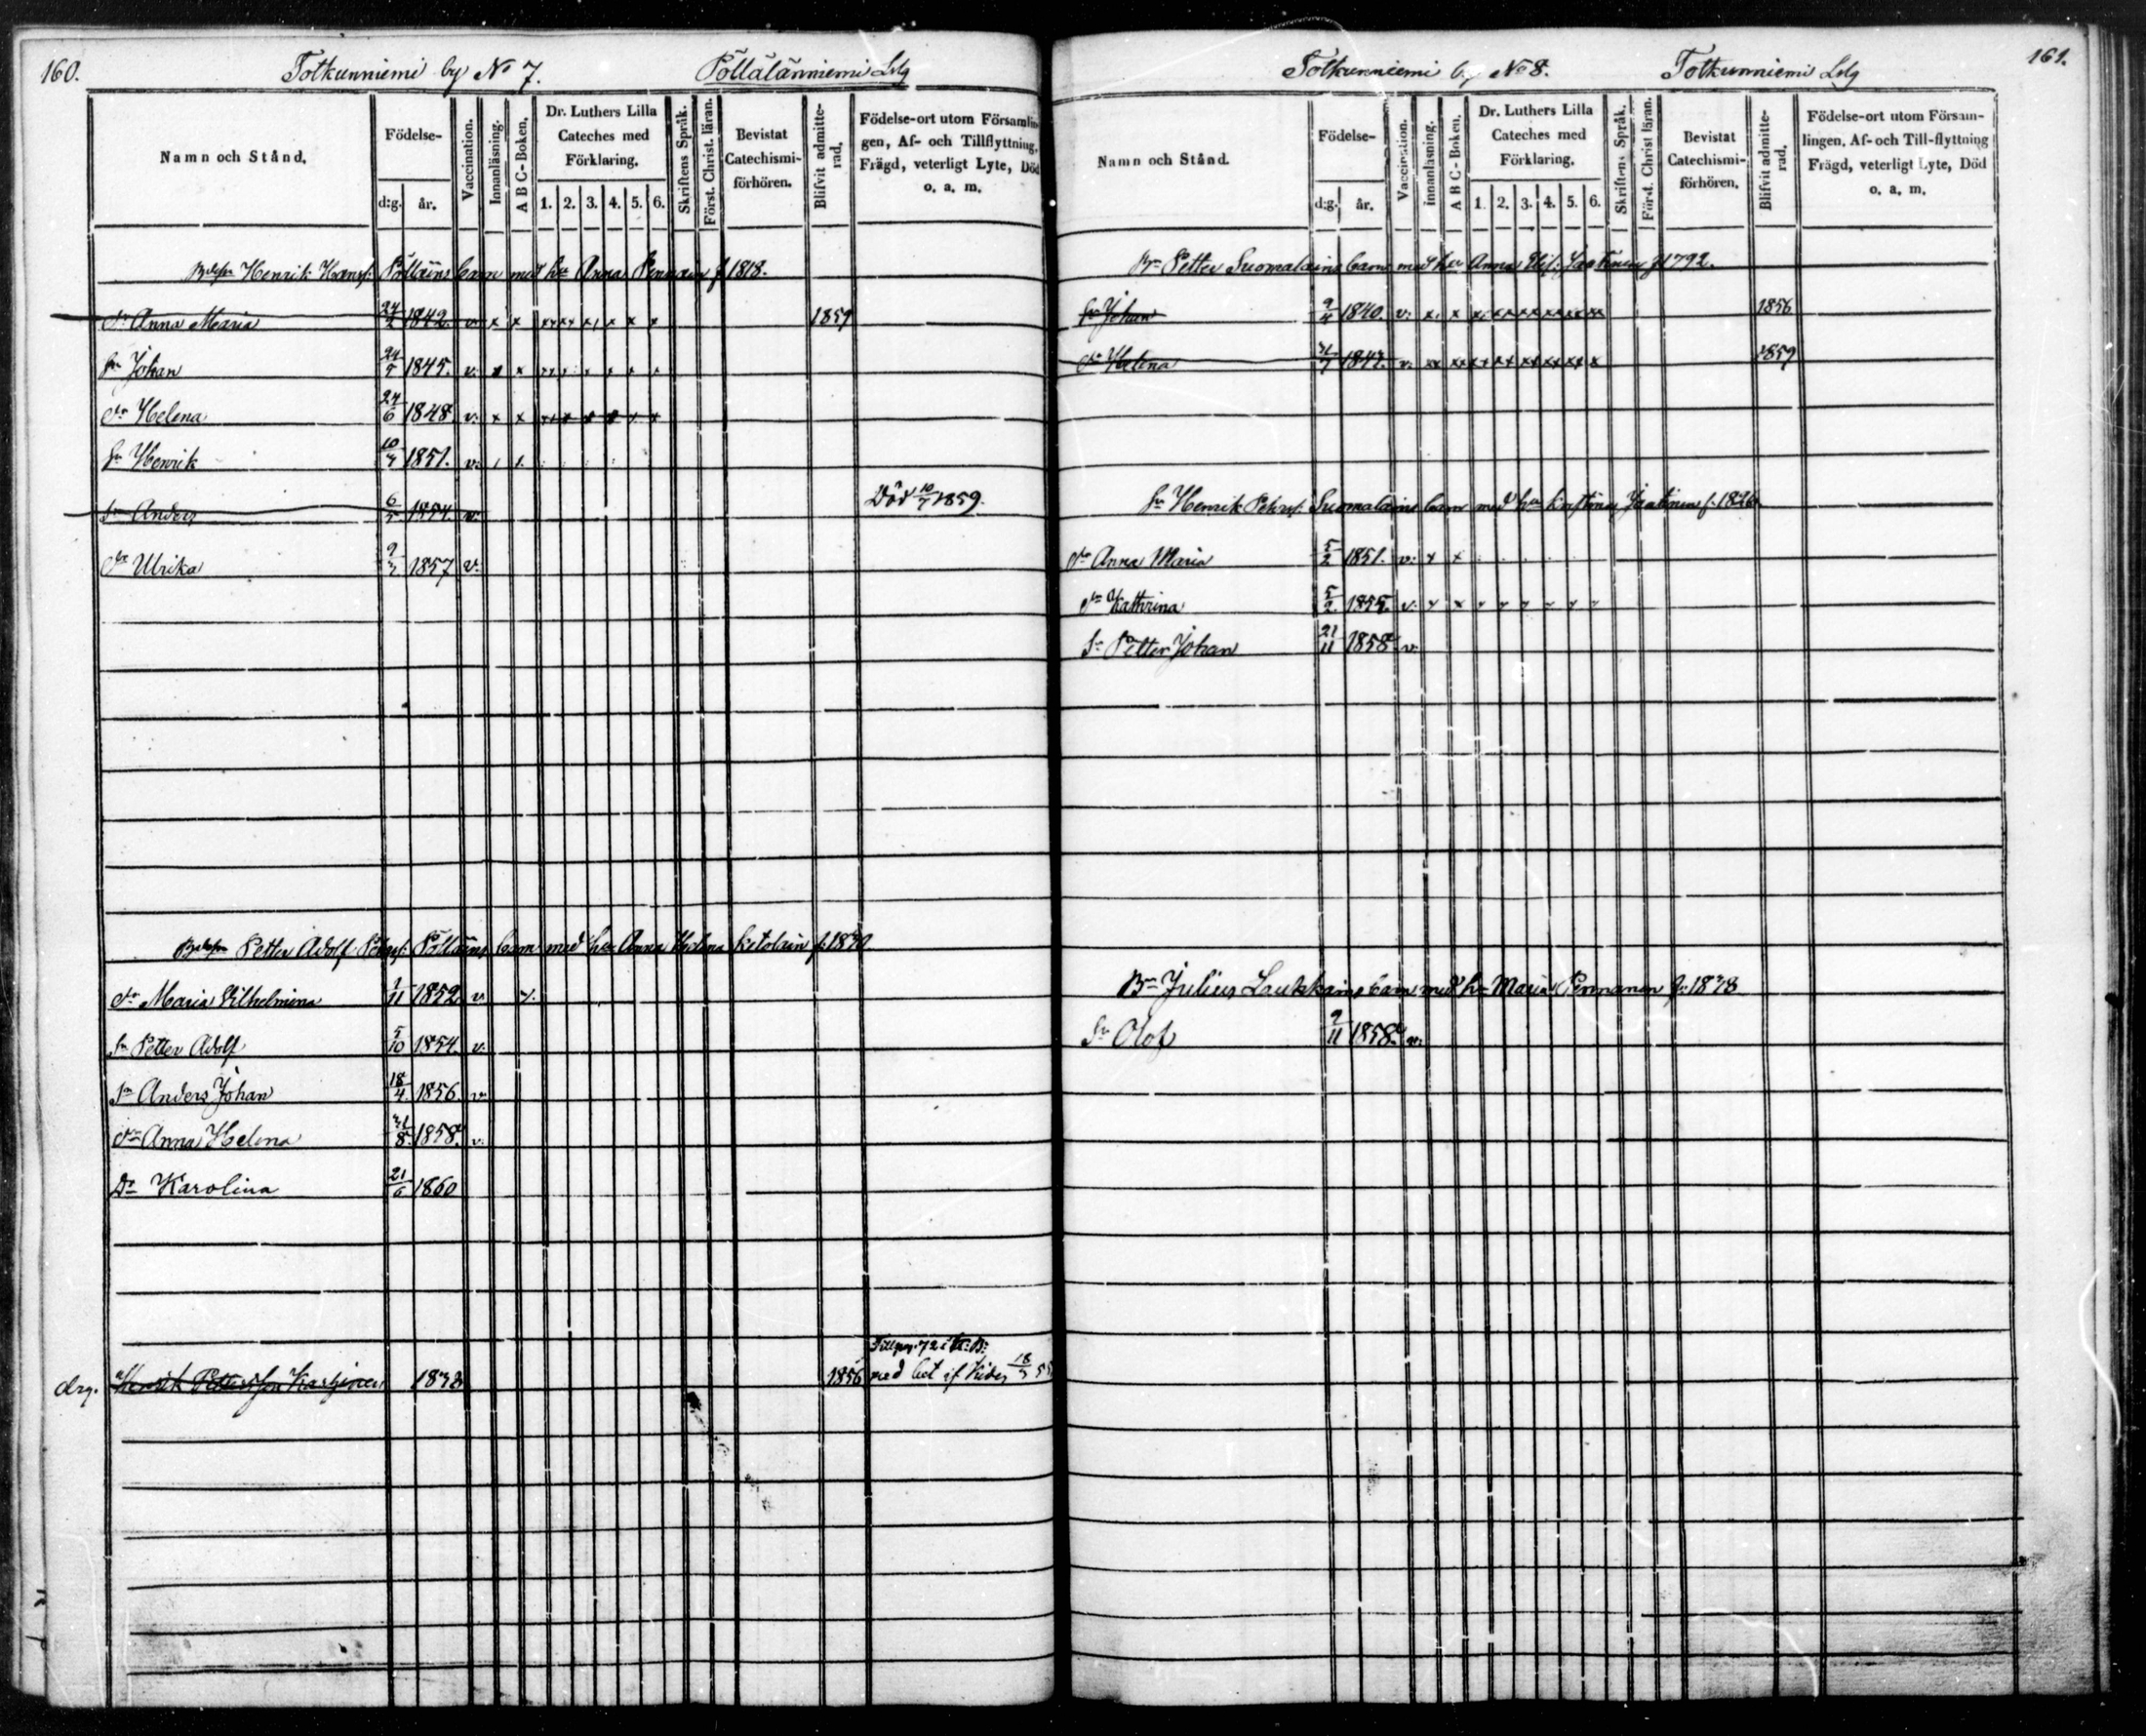 160.
Totkunniemi by No 7. Pöllälänniemi Ldg
Namn och Stånd.
Födelse-
d:g. år.
Vaccination.
Innanläsning.
A B C-Boken.
Dr. Luthers Lilla Cateches med Förklaring.
1. 2. 3. 4. 5. 6.
Skriftens Språk.
Först. Christ. läran.
Bevistat Catechismi-förhören.
Blifvit admitte-rad.
Födelse-ort utom Församlin-
gen, Af- och Tillflyttning,
Frägd, veterligt Lyte, Död
o. a. m.
Henrik Hansf: Pölläins barn med hu Anna Pennain f 1818.
Dr Anna Maria 24/2 1842. v. x x 1859
Sn Johan 24/5 1845. v. x x
Dr Helena 24/6 1848. v. x x
Sn Henrik 10/7 1851. v.
Sn Anders 6/5 1854. v. Död 10/7 1859.
Dr Ulrika 1857 v.
Petter Adolf Pölläins barn med hu Anna Helena Ketolain f. 1830
Dr Maria Wilhelmina 1/11 1852 v.
Sn Petter Adolf 5/10 1854. v.
Sn Anders Johan 18/4 1856. v.
Dr Anna Helena 31/8 1858. v.
Dr Karolina 21/6 1860
drg. Henrik Pettersson Karhinen 1838 1856
med bet. 18/3 55
161.
Totkunniemi by No 8. Totkunniemi Ldg
Namn och Stånd.
Födelse-
d:g. år.
Vaccination.
Innanläsning.
A B C-Boken.
Dr. Luthers Lilla Cateches med Förklaring.
1. 2. 3. 4. 5. 6.
Skriftens Språk.
Förd. Christ läran.
Bevistat Catechismi-förhören.
Blifvit admitte-rad.
Födelse-ort utom Försam-
lingen, Af- och Till-flyttning
Frägd, veterligt Lyte, Död
o. a. m.
Bn Petter Suomalains barn med hu Anna Elis: Jaatinen f 1792.
Sn Johan 9/4 1840. v. 1856
Dr Helena 1843. v. 1859
Sn Henrik Petersf. Suomalains barn med hu Kristina Jaatinen f. 1826
Dr Anna Maria 5/2 1851. v. x x
Dr Kathrina 5/2 1855. v.
Sn Petter Johan 21/11 1858 v.
Bn Julius Laukkains barn med hu Maria Pennanen f: 1838
Sn Olof 9/11 1858. v.